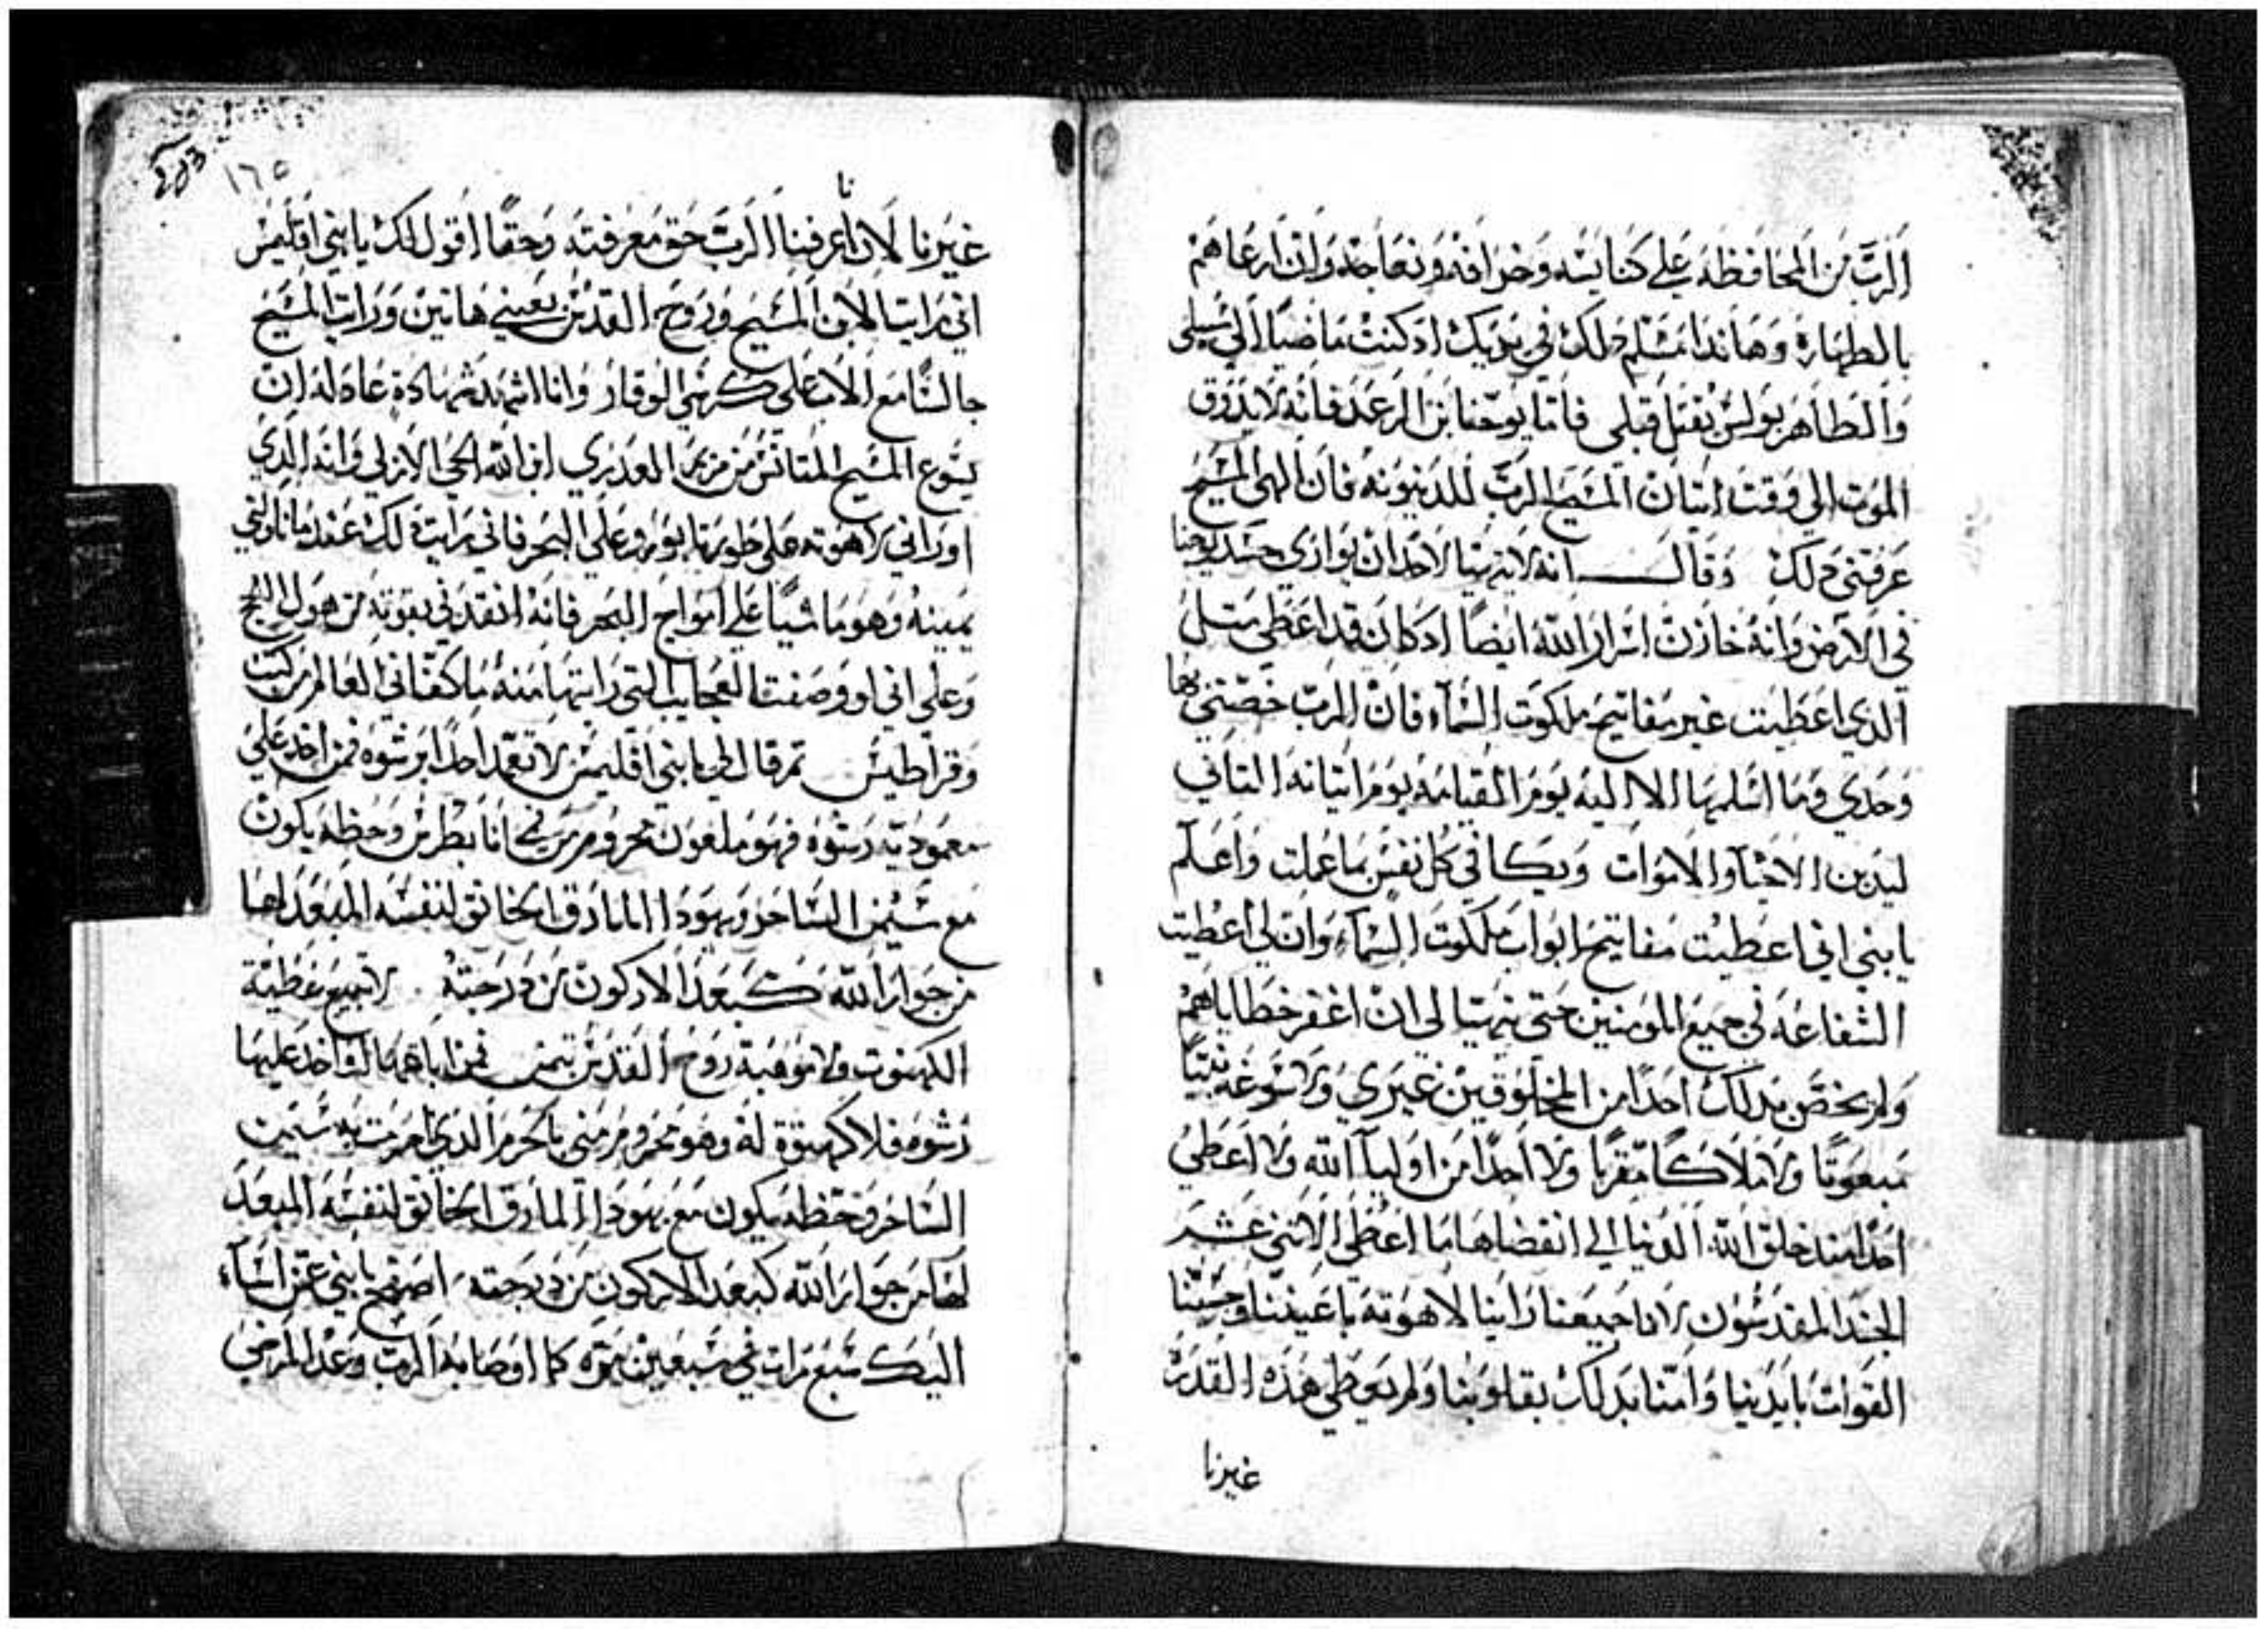 الرب من المحافظه علي كنايسه وخرافه ونعاجه وان ارعاهم
بالطهارة وهاندا مسلم دلك في يديك ادكنت ماضيا الي سبيلي
والطاهر بولس يقتل قبلي فاما يوحنا بن الرعد فانه لا يدوق
الموت الي وقت اتيان المسيح الرب للدينونه فان الهي المسيح
عرفني دلك وقال انه لا يتهيا لاحد ان يواري جسد يوحنا
في الارض وانه خازن اسرار الله ايضا ادكان قد اعطي مثل
الدي اعطيت غير مفاتيح ملكوت السماء فان الرب خصني بها
وحدي وما اسلمها الا اليه يوم القيامه يوم اتيانه التاني
ليدين الاحيا والاموات ويكافي كل نفس بما عملت واعلم
يابني اني اعطيت مفاتيح ابواب ملكوت السماء وان لي اعطيت
الشفاعه في جميع المومنين حتي يتهيا لي ان اغفر خطاياهم
ولم يخص بدلك احدا من المخلوقين غيري ولا سوغه نبيا
مبعوتا ولا ملاكا مقربا ولا احدا من اوليآ الله ولا اعطي
احدا مند خلق الله الدنيا الي انقضاها ما اعطي الاتني عشر
الجند المقدسون لانا جميعنا راينا لاهوته باعيننا وجسينا
القوات بايدينا وامنا بدلك بقلوبنا ولم يعطي هذه القدره
غيرنا
١٦٥
نا
غيرنا لان اعرفنا الرب حق معرفته وحقا اقول لك يابني اقليمس
اني رايت الابن المسيح وروح القدس بعيني هاتين ورايت المسيح
جالسا مع الاب علي كرسي الوقار وانا اشهد شهادة عادله ان
يسوع المسيح المتانس من مريم العدري ابن الله الحي الازلي وانه الدي
اوراني لاهوته علي طور تابور وعلي البحر فاني رايت دلك عند ما ناولني
يمينه وهو ماشيا علي امواج البحر فانه انقدني بقوته من هول اللجج
وعلي اني لو وصفت العجايب التي رايتها منه ما كفاني العالم من كتب
وقراطيس تم قال لي يابني اقليمس لا تعمد احدا برشوه فمن اخد علي
معموديته رشوه فهو ملعون محروم من فمي انا بطرس وحظه يكون
مع سيمن الساحر ويهودا المادق الخانق لنفسه المبعد لها
من جوار الله كبعد الاركون من درجته لا تبيع عطية
الكهنوت ولا موهبة روح القدس بتمن فمن اباعهما لتاخد عليها
رشوه فلا كهنوة له وهو محروم مني بالحرم الدي احرمت به سيمن
الساحر وحظه يكون مع يهودا المادق الخانق لنفسه المبعد
لها من جوار الله كبعد الاركون من درجته اصفح يابني عن اسآء
اليك سبع مرات في سبعين مره كما اوصا به الرب وعد المرضي